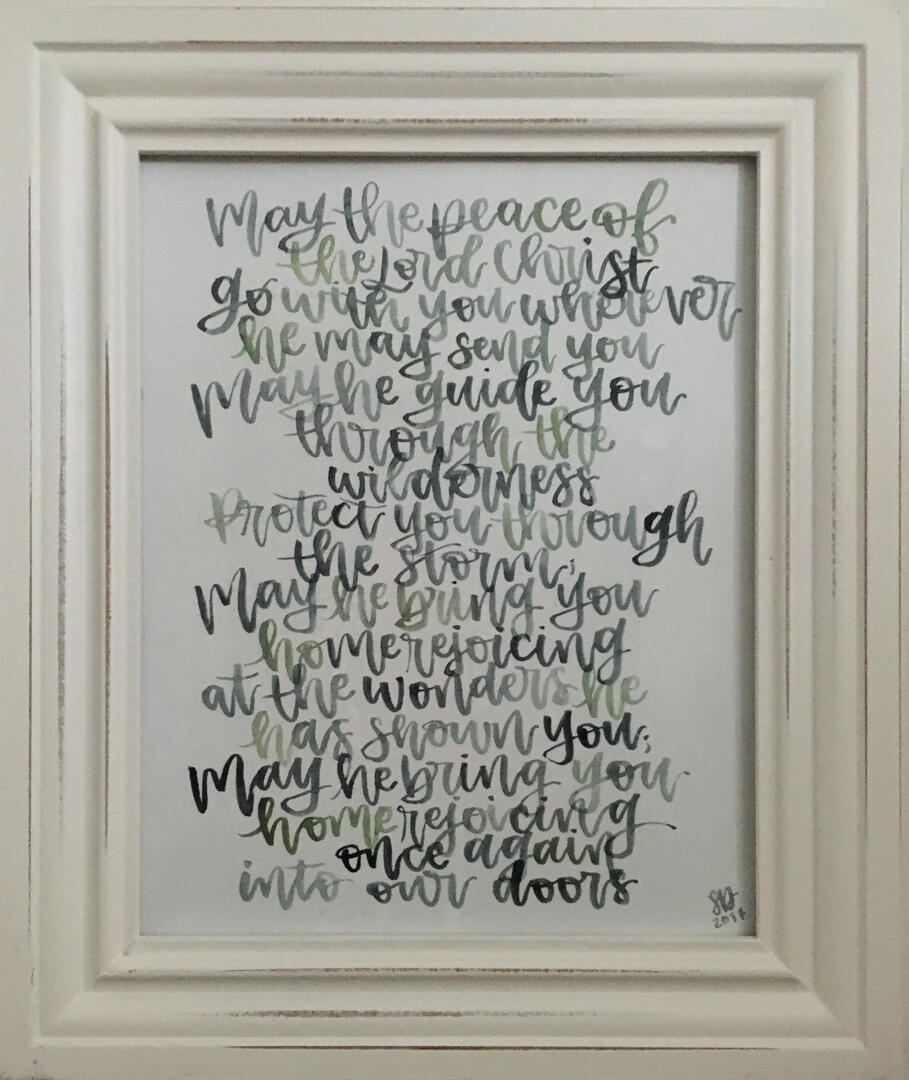 May the peace of
the Lord Christ
go with you wherever
he may send you
May he guide you
through the
wilderness
Protect you through
the storm;
May he bring you
home rejoicing
at the wonders he
has shown you;
May he bring you
home rejoicing
once again
into our doors
2017